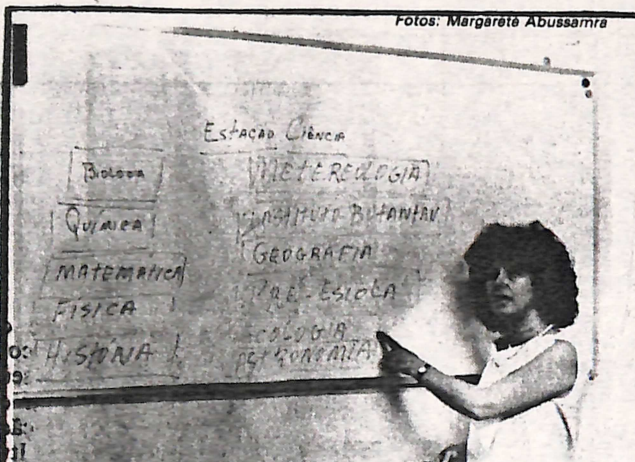 Fotos: Margarete Abussamra
Estação Ciência
Biologia
Química
Matemática
Física
História
Metereologia
Instituto Butantan
Geografia
Pré-Escola
Ecologia
Astronomia